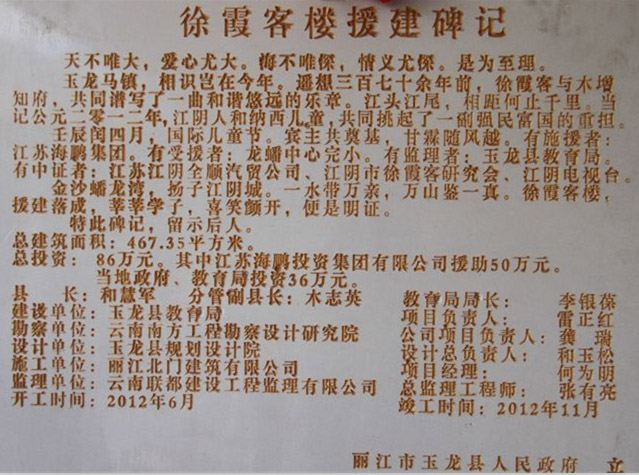 徐霞客楼援建碑记
天不唯大，爱心尤大。海不唯深，情义尤深。是为至理。
玉龙马镇，相识岂在今年。遥想三百七十余年前，徐霞客与木增
知府，共同谱写了一曲和谐悠远的乐章。江头江尾，相距何止千里。当
记公元二零一二年，江阴人和纳西儿童，共同挑起了一副强民富国的重担。
壬辰闰四月，国际儿童节。宾主共奠基，甘霖随风越。有施援者：
江苏海鹏集团。有受援者：龙蟠中心完小。有监理者：玉龙县教育局。
有中证者：江苏江阴全顺汽贸公司、江阴市徐霞客研究会、江阴电视台。
金沙蟠龙湾，扬子江阴城。一水带万亲，万山鉴一真。徐霞客楼，
援建落成，莘莘学子，喜笑颜开，便是明证。
特此碑记，留示后人。
总建筑面积：467.35平方米。
总投资：86万元。其中江苏海鹏投资集团有限公司援助50万元。
当地政府、教育局投资36万元。
县 长：和慧军 分管副县长：木志英 教育局局长：李银葆
建设单位：玉龙县教育局 项目负责人：雷正红
勘察单位：云南南方工程勘察设计研究院 公司项目负责人：龚瑞
设计单位：玉龙县规划设计院 设计总负责人：和玉松
施工单位：丽江北门建筑有限公司 项目经理：何为明
监理单位：云南联都建设工程监理有限公司 总监理工程师：张有亮
开工时间：2012年6月 竣工时间：2012年11月
丽江市玉龙县人民政府 立